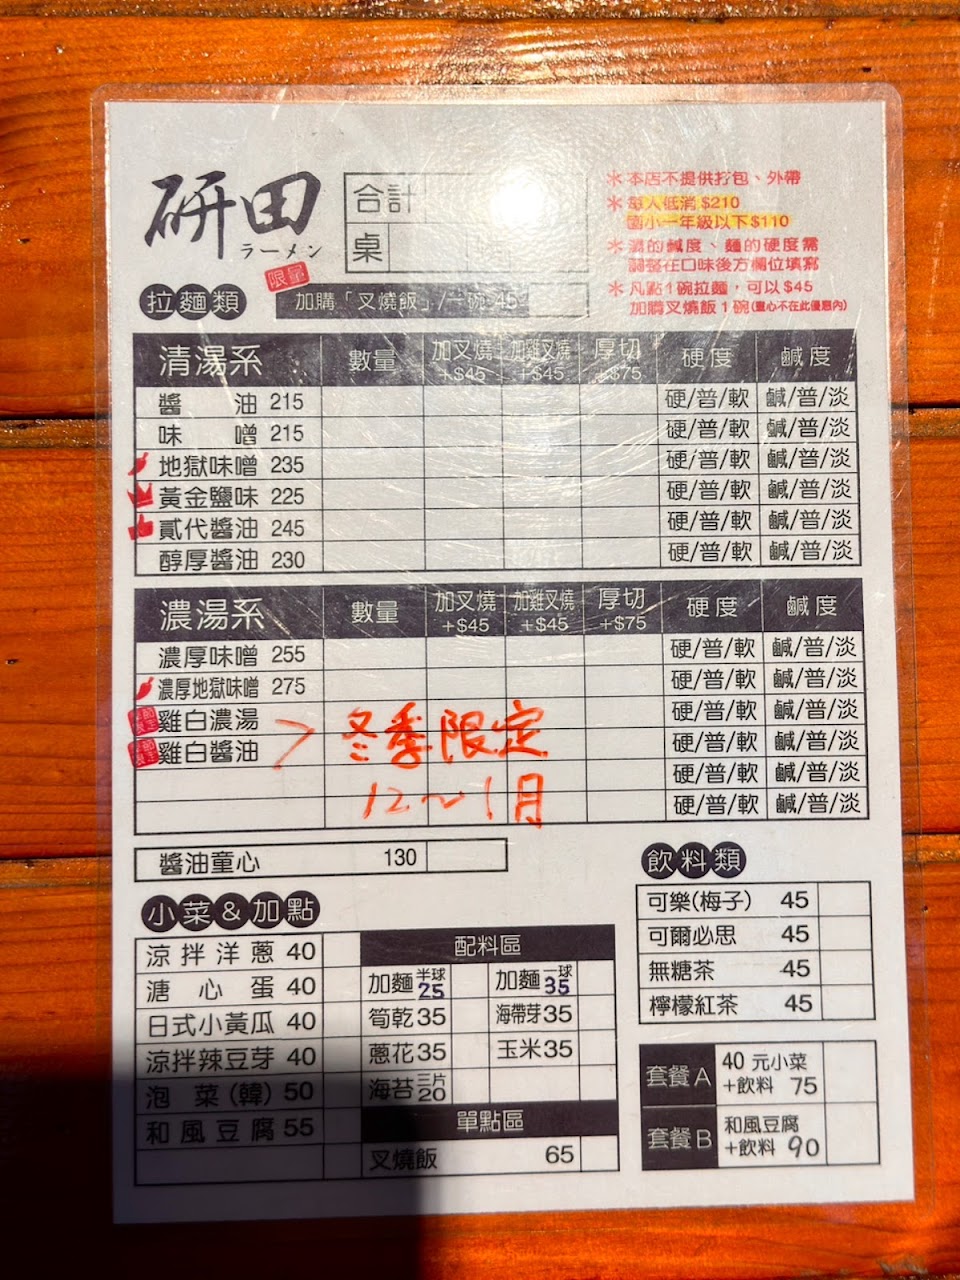 研田
ラーメン
合計
桌
＊本店不提供打包、外帶
＊每人低消$210
國小一年級以下$110
＊湯的鹹度、麵的硬度需
調整在口味後方欄位填寫
＊凡點1碗拉麵，可以$45
加購叉燒飯1碗(童心不在此優惠內)
限量
拉麵類
加購「叉燒飯」/一碗 45
清湯系 數量 加叉燒+$45 加雞叉燒+$45 厚切+$75 硬度 鹹度
醬油 215 硬/普/軟 鹹/普/淡
味噌 215 硬/普/軟 鹹/普/淡
地獄味噌 235 硬/普/軟 鹹/普/淡
黃金鹽味 225 硬/普/軟 鹹/普/淡
貳代醬油 245 硬/普/軟 鹹/普/淡
醇厚醬油 230 硬/普/軟 鹹/普/淡
濃湯系 數量 加叉燒+$45 加雞叉燒+$45 厚切+$75 硬度 鹹度
濃厚味噌 255 硬/普/軟 鹹/普/淡
濃厚地獄味噌 275 硬/普/軟 鹹/普/淡
雞白濃湯 硬/普/軟 鹹/普/淡
雞白醬油 硬/普/軟 鹹/普/淡
冬季限定
硬/普/軟 鹹/普/淡
12～1月
硬/普/軟 鹹/普/淡
醬油童心 130
小菜&加點
涼拌洋蔥 40
溏心蛋 40
日式小黃瓜 40
涼拌辣豆芽 40
泡菜(韓) 50
和風豆腐 55
配料區
加麵半球25 加麵一球35
筍乾35 海帶芽35
蔥花35 玉米35
海苔三片20
單點區
叉燒飯 65
飲料類
可樂(梅子) 45
可爾必思 45
無糖茶 45
檸檬紅茶 45
套餐A 40元小菜+飲料 75
套餐B 和風豆腐+飲料 90